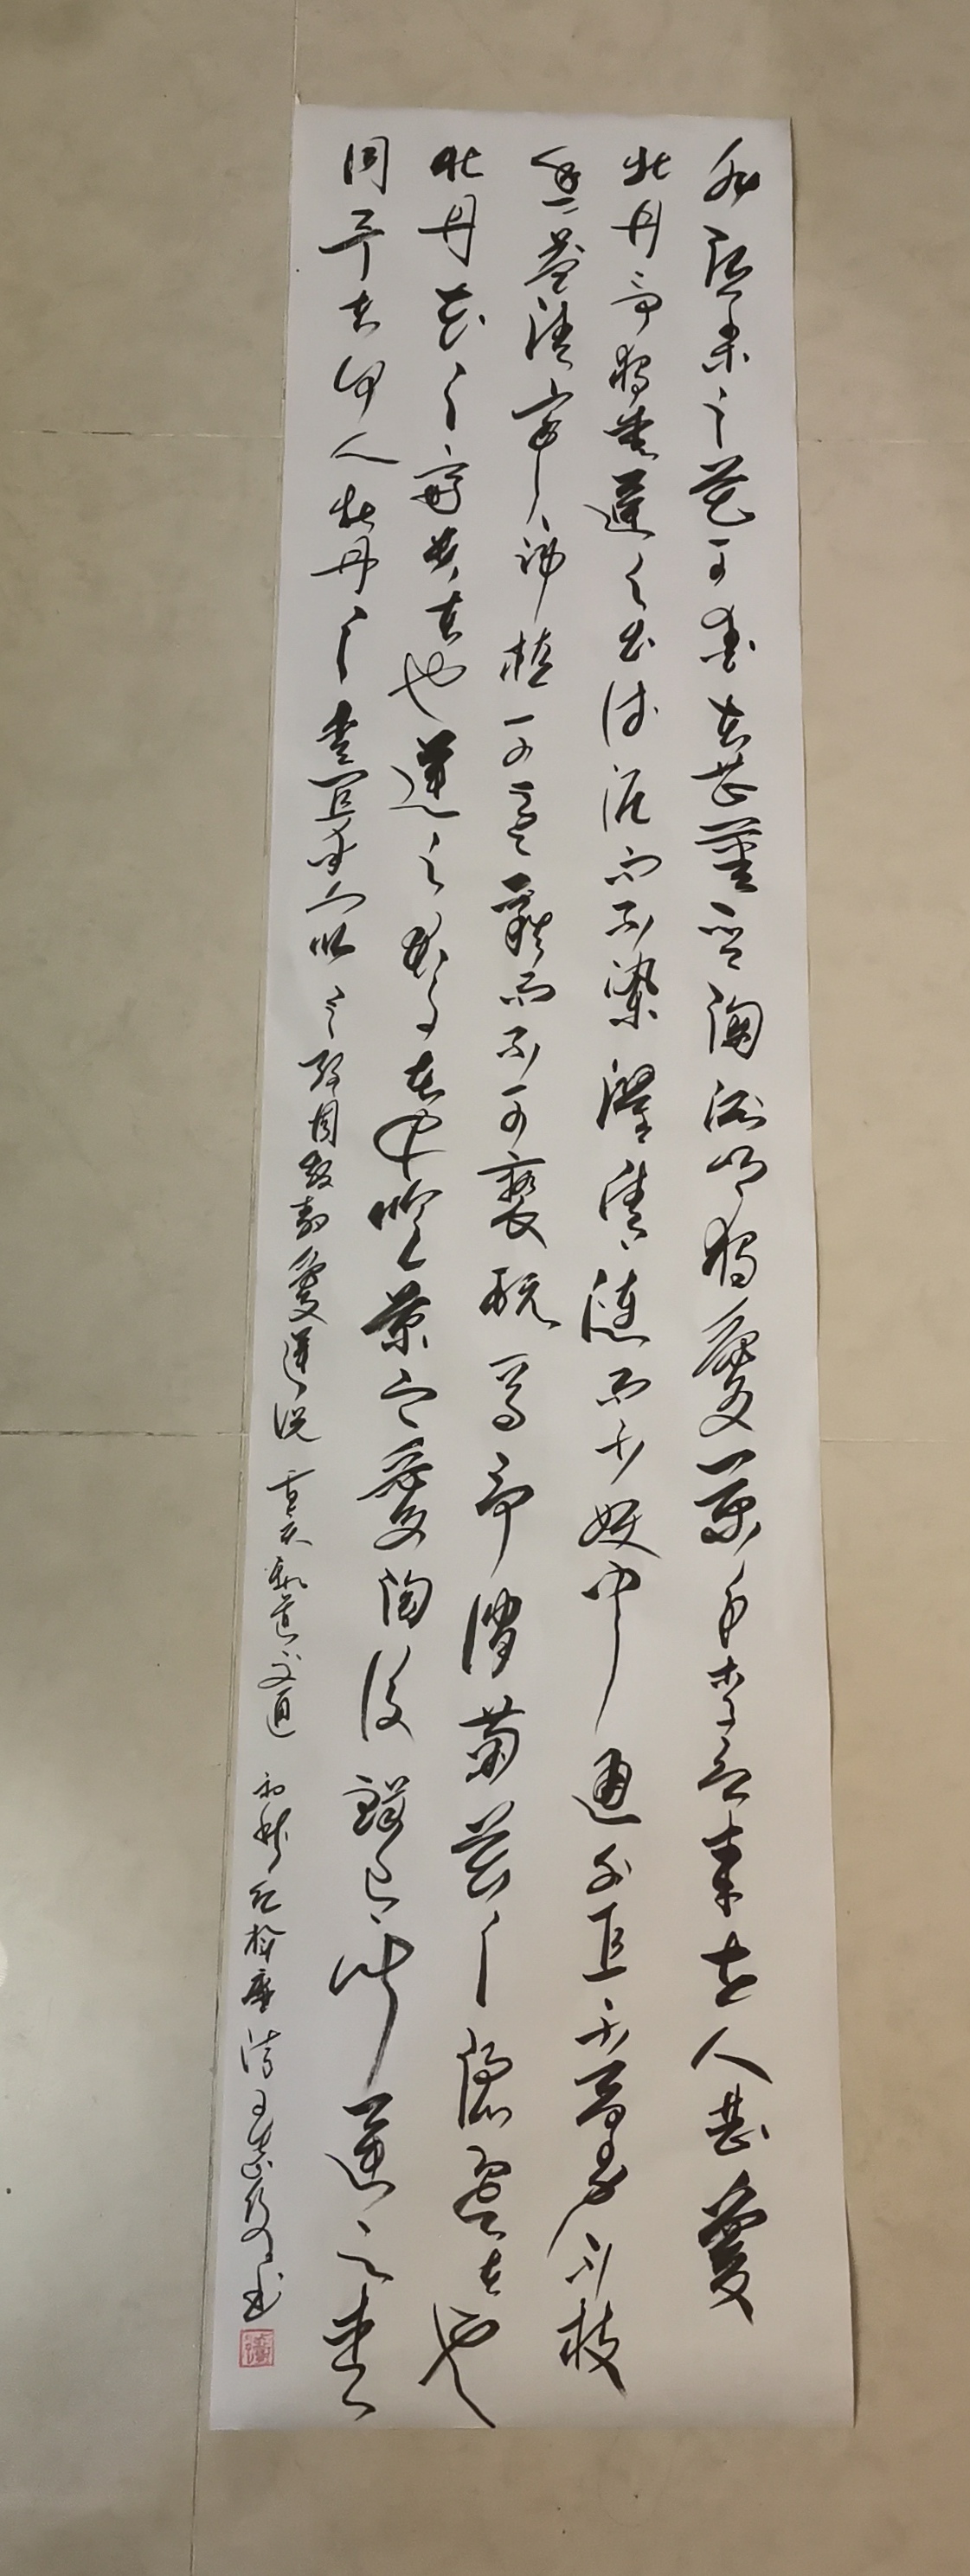 水陸草木之花可愛者甚蕃晉陶淵明獨愛菊自李唐來世人甚愛
牡丹予獨愛蓮之出淤泥而不染濯清漣而不妖中通外直不蔓不枝
香遠益清亭亭淨植可遠觀而不可褻玩焉予謂菊花之隱逸者也
牡丹花之富貴者也蓮之君子者也噫菊之愛陶後鮮有聞蓮之愛
同予者何人牡丹之愛宜乎眾矣 周敦頤愛蓮說